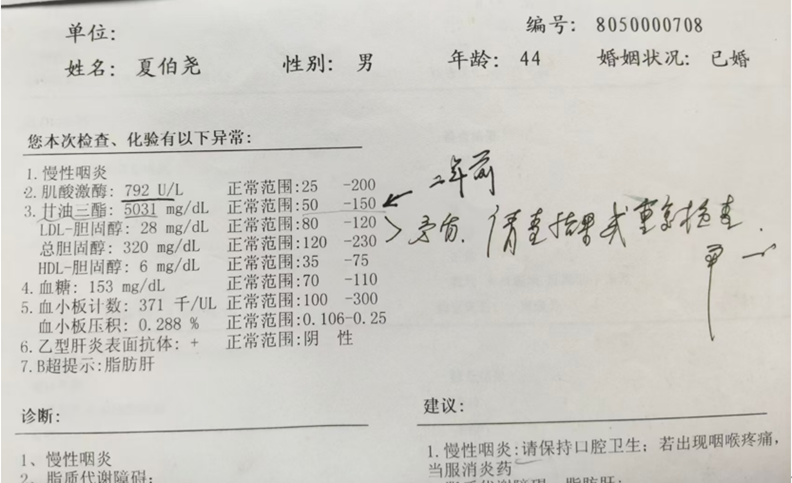 单位:
编号: 8050000708
姓名: 夏伯尧 性别: 男 年龄: 44 婚姻状况: 已婚
您本次检查、化验有以下异常:
1. 慢性咽炎
2. 肌酸激酶: 792 U/L 正常范围:25 -200
二年前
3. 甘油三酯: 5031 mg/dL 正常范围:50 -150
LDL-胆固醇: 28 mg/dL 正常范围:80 -120
矛盾. 请查结果或重复检查.
总胆固醇: 320 mg/dL 正常范围:120 -230
HDL-胆固醇: 6 mg/dL 正常范围:35 -75
4. 血糖: 153 mg/dL 正常范围:70 -110
5. 血小板计数: 371 千/UL 正常范围:100 -300
血小板压积: 0.288 % 正常范围:0.106-0.25
6. 乙型肝炎表面抗体: + 正常范围:阴 性
7. B超提示:脂肪肝
诊断:
1、慢性咽炎
2、脂质代谢障碍;
建议:
1. 慢性咽炎:请保持口腔卫生; 若出现咽喉疼痛,
当服消炎药